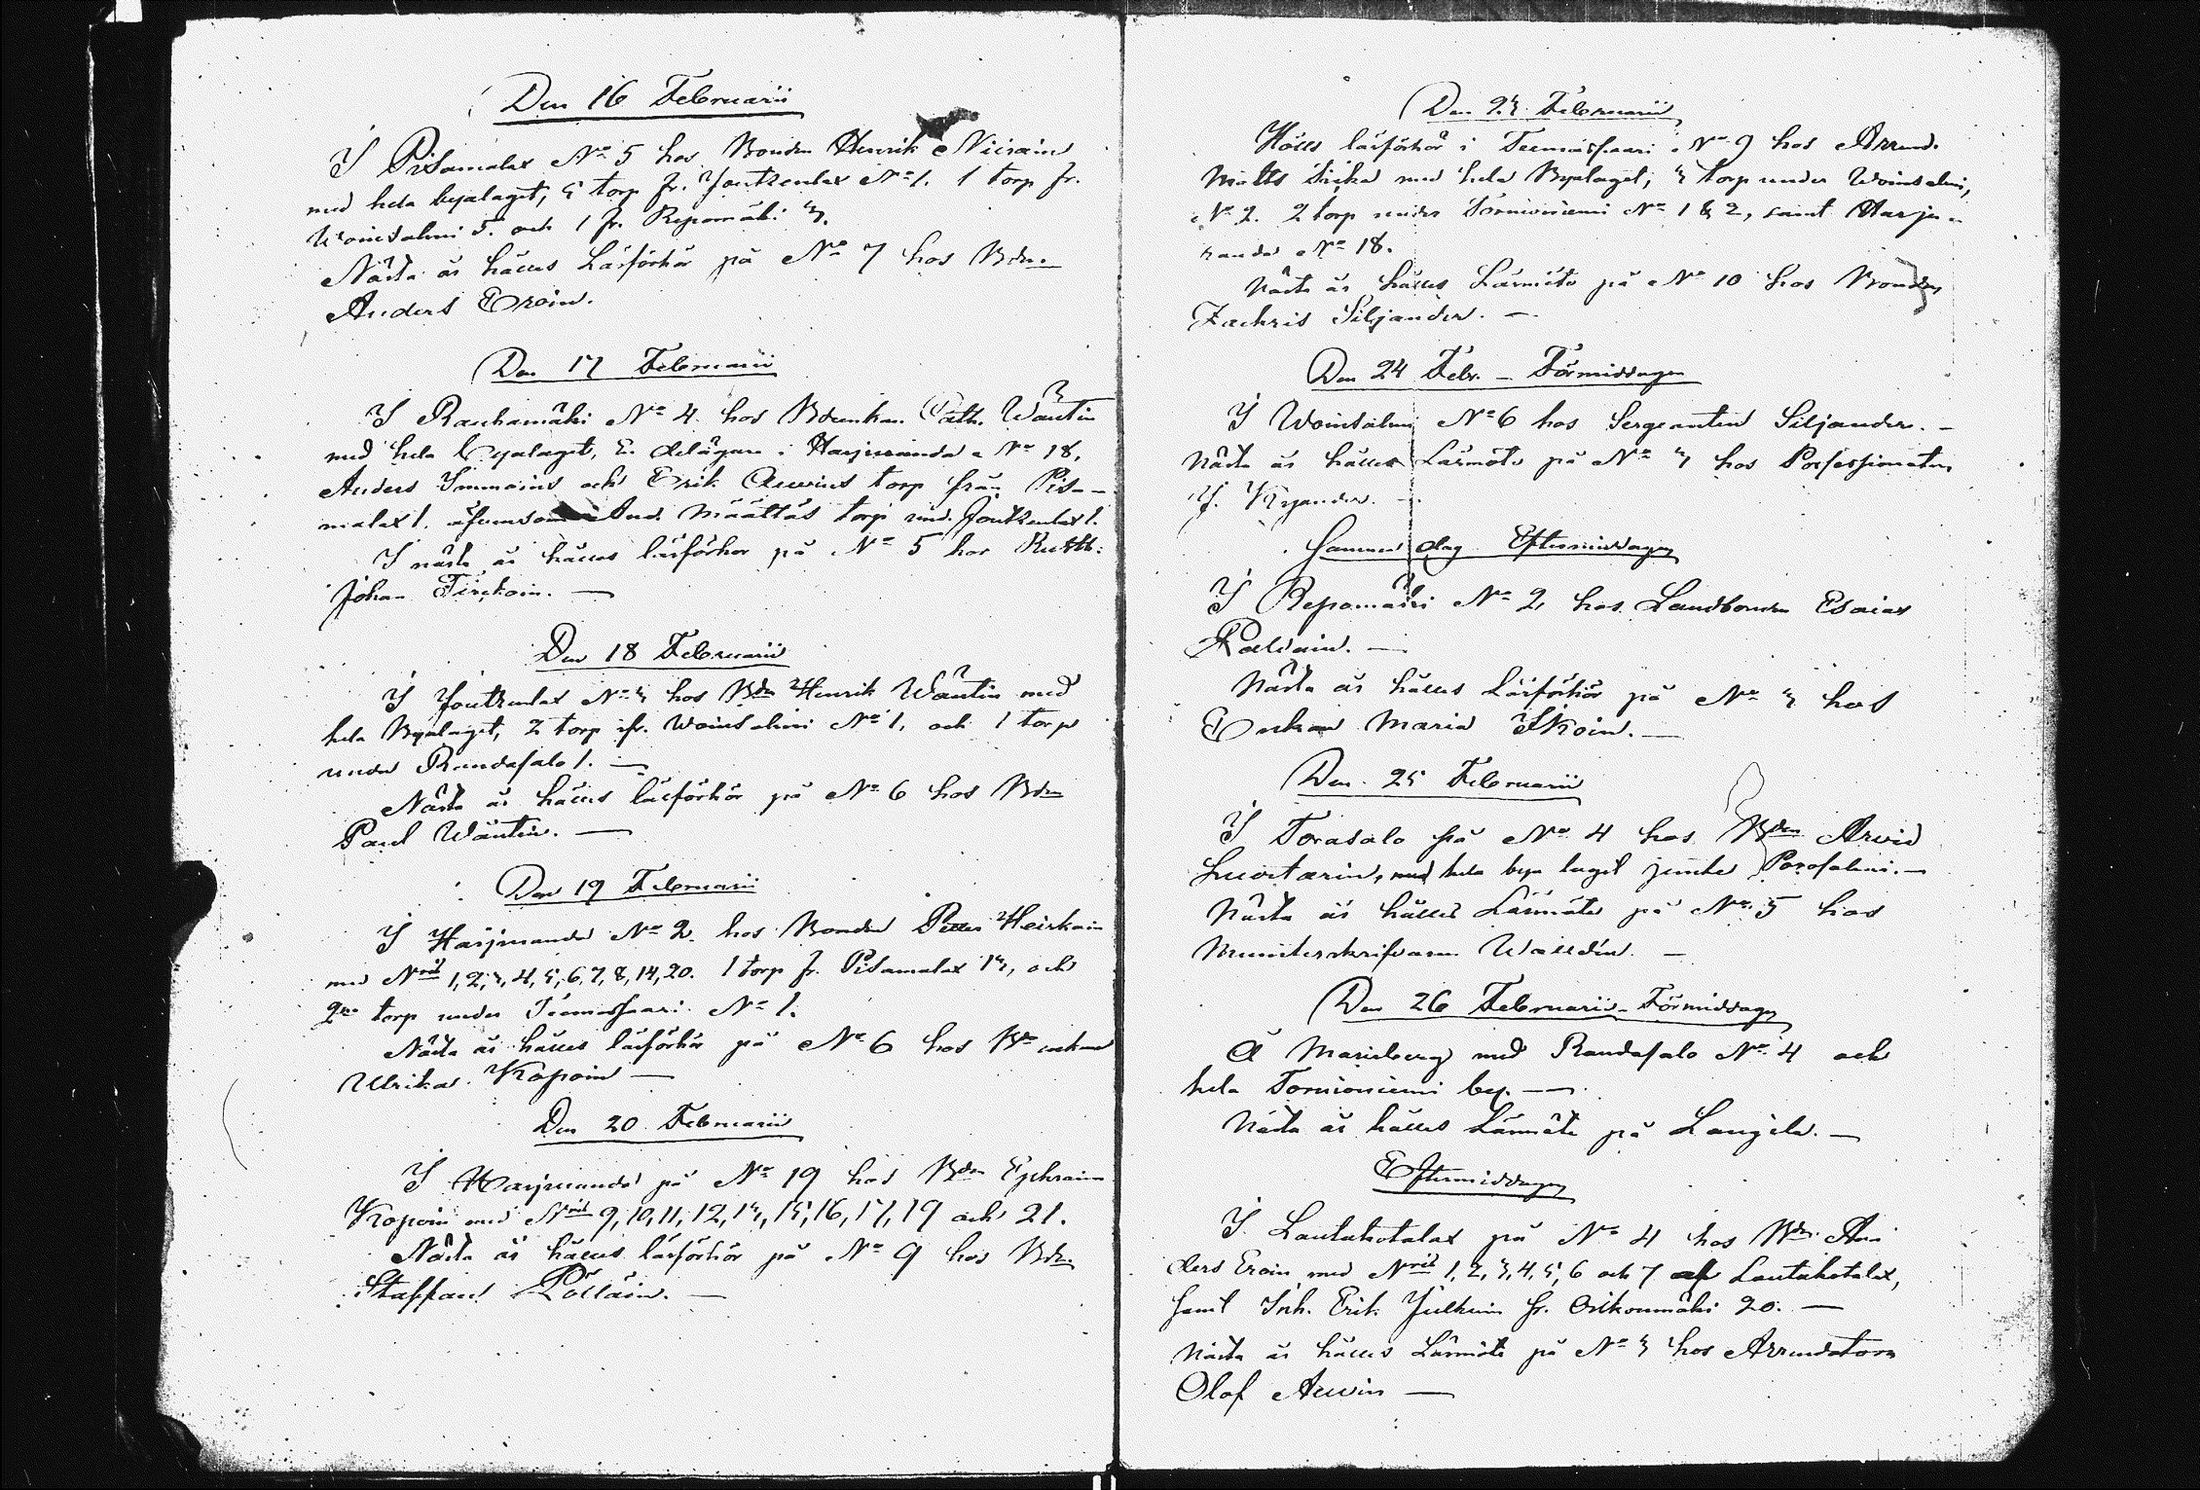 Den 16 Februarii
I Pisamalax No 5 hos Bonden Henrik Niirain
med hela byalaget, 5 torp fr. Joutzenlax No 1. 1 torp fr.
Woinsalmi 5. och 1 fr. Repomäki 3.
Nästa år hålles Läsförhör på No 7 hos Bdn.
Anders Eroin.
Den 17 Februarii
I Rauhamäki No 4 hos Bdenkan Cath. Wäntin
med hela Byalaget, delägare i Harjuranda No 18,
Anders Immoins och Erik Auvins torp från Pisa-
malax 1. äfvensom And. Määttäs torp und. Joutzenlax 1.
I nästa år hålles läsförhör på No 5 hos Rustth:
Johan Tirckoin. —
Den 18 Februarii
I Joutzenlax No 3 hos Bdn Henrik Wäntin med
hela Byalaget, 2 torp fr. Woinsalmi No 1, och 1 torp
under Randasalo 1. —
Nästa år hålles läsförhör på No 6 hos Bdn
Paul Wäntin. —
Den 19 Februarii
I Harjuranda No 2 hos Bonden Petter Heiskain
med Nris 1, 2, 3, 4, 5, 6, 7, 8, 14, 20. 1 torp fr. Pisamalax 13, och
2ne torp under Teemassaari No 1.
Nästa år hålles läsförhör på No 6 hos Bdenkan
Ulrika Kopoin —
Den 20 Februarii
I Harjuranda på No 19 hos Bdn Ephraim
Kopoin med Nris 9, 10, 11, 12, 13, 15, 16, 17, 19 och 21.
Nästa år hålles läsförhör på No 9 hos Bdn
Staffan Pölläin. —
Den 23 Februarii
Hölls läsförhör i Teemassaari No 9 hos Arrend.
Matts Sicka med hela Byalaget, 3 torp under Woinsalmi,
No 2. 2 torp under Tornioniemi No 1 & 2, samt Harju-
randa No 18.
Nästa år hålles Läsmöte på No 10 hos Bonden
Zachris Siljander. —
Den 24 Febr. — Förmiddagen
I Woinsalmi No 6 hos Sergeanten Siljander. -
Nästa år hålles Läsmöte på No 3 hos Possessionaten
J. Kyander. —
Samma dag Eftermiddagen
I Repomäki No 2 hos Landbonden Esaias
Paldain. —
Nästa år hålles Läsförhör på No 3 hos
Enkan Maria Ikoin. —
Den 25 Februarii
I Torasalo på No 4 hos Bdn Arvid
Luostarin, med hela bya laget jemte Porosalmi. —
Nästa år hålles Läsmöte på No 5 hos
Munsterskrifvaren Walldén. —
Den 26 Februarii - Förmiddagen
Å Marieberg med Randasalo No 4 och
hela Tornioniemi by. —
Nästa år hålles Läsmöte på Langila. —
Eftermiddagen
I Lautakotalax på No 4 hos Bdn An-
ders Eroin med Nris 1, 2, 3, 4, 5, 6 och 7 af Lautakotalax,
samt Inh. Erik Julkuin fr. Osikonmäki 20. —
Nästa år hålles Läsmöte på No 3 hos Arrendatorn
Olof Auvin —